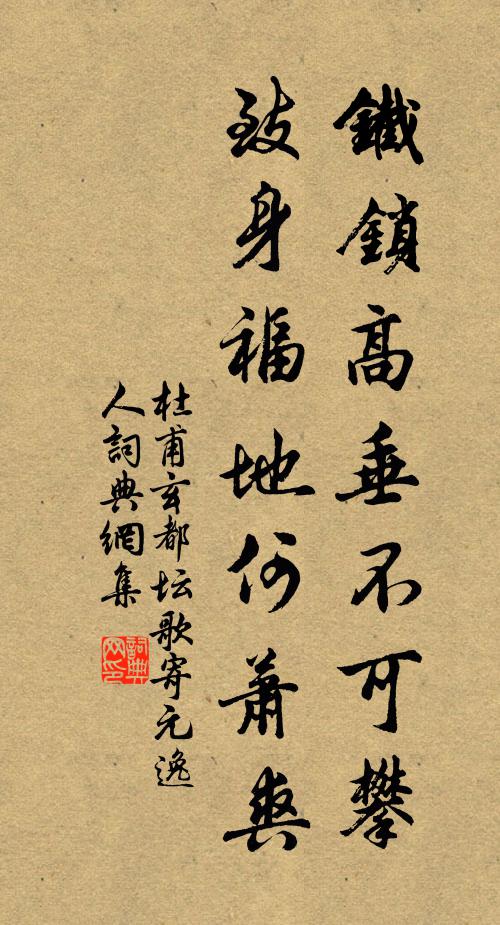 鐵鎖高垂不可攀
致身福地何蕭爽
杜甫玄都坛歌寄元逸
人詞典網集
詞典网印